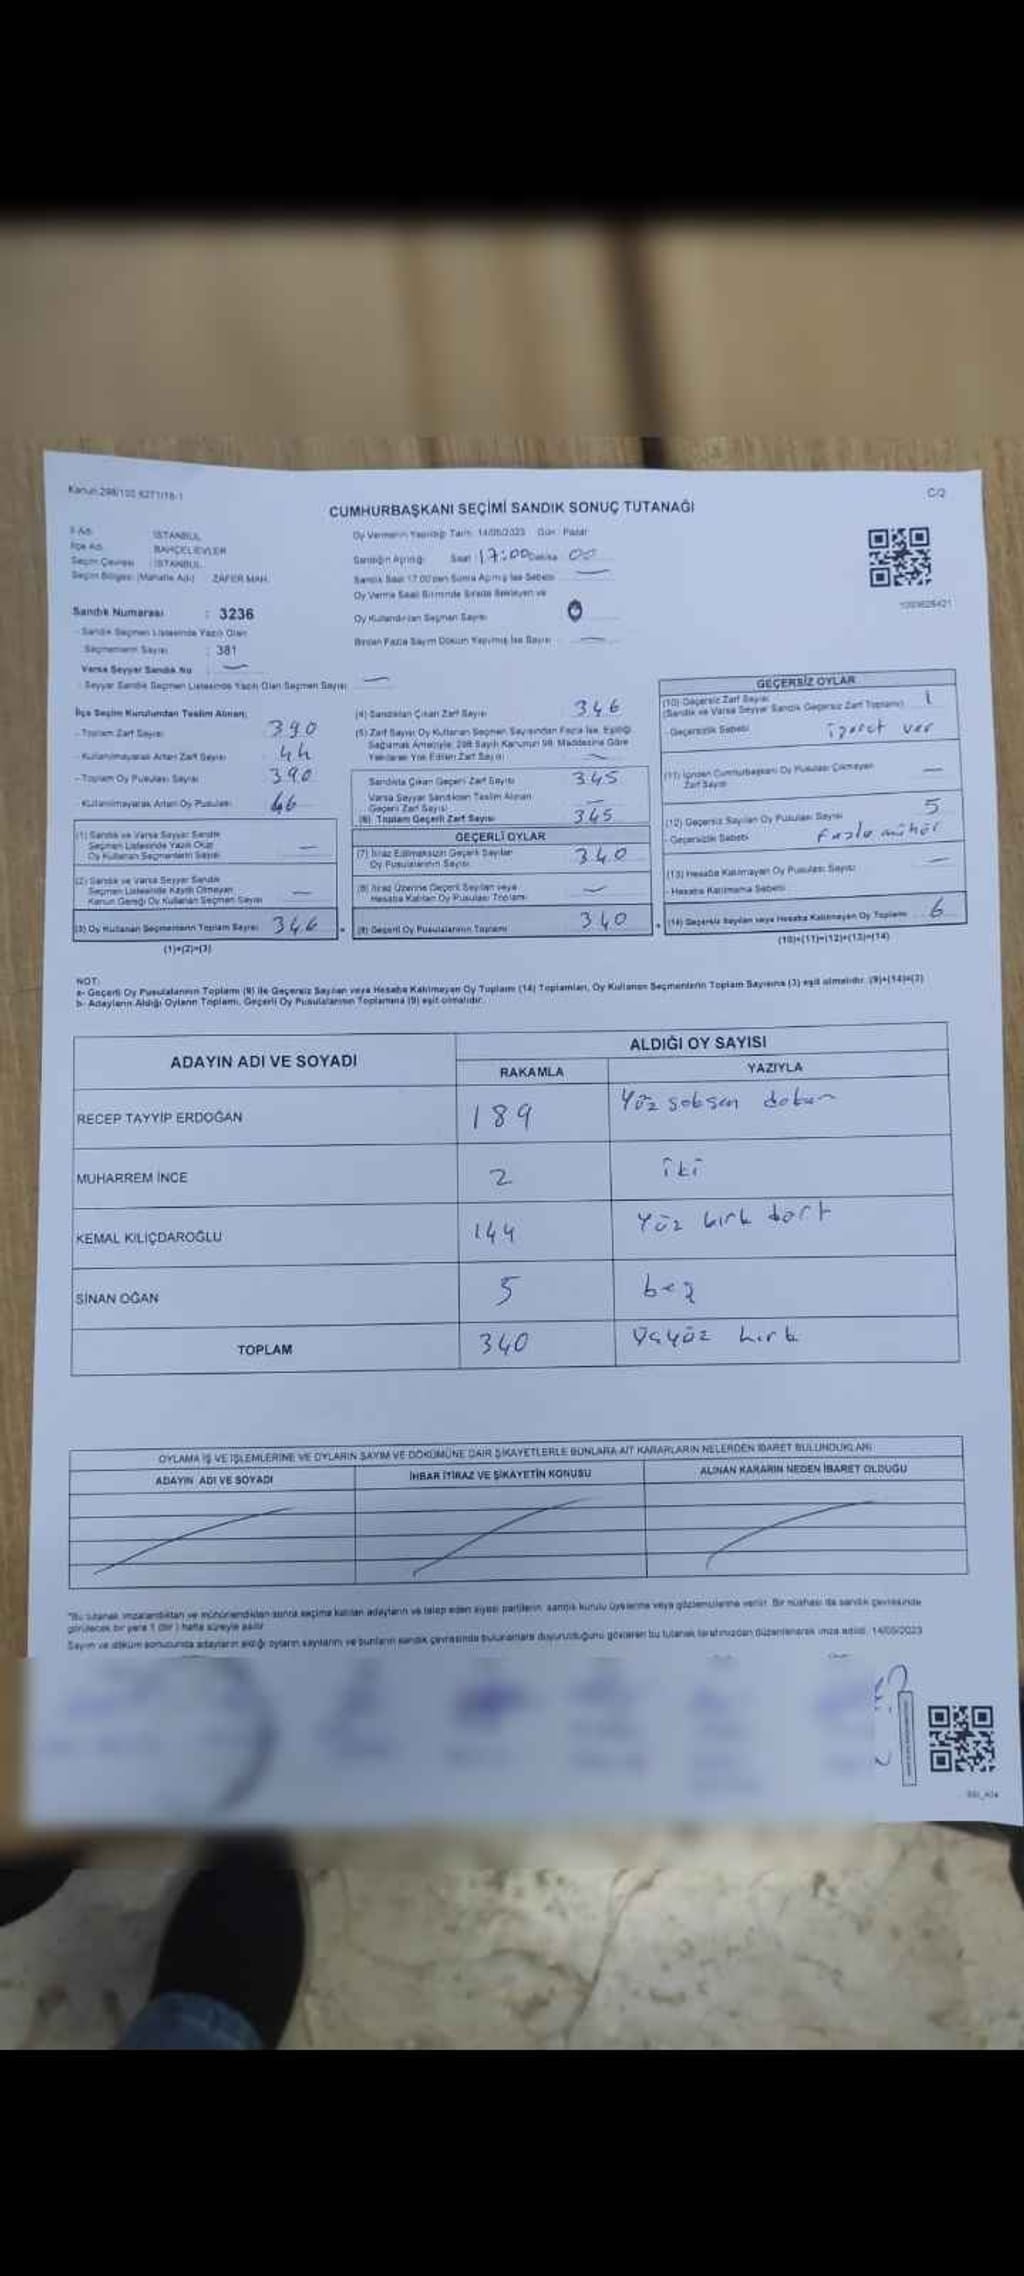 Kanun 298/105 6271/18-1
C/2
CUMHURBAŞKANI SEÇİMİ SANDIK SONUÇ TUTANAĞI
İl Adı : İSTANBUL
İlçe Adı : BAHÇELİEVLER
Seçim Çevresi : İSTANBUL
Seçim Bölgesi (Mahalle Adı) : ZAFER MAH.
Sandık Numarası : 3236
- Sandık Seçmen Listesinde Yazılı Olan
Seçmenlerin Sayısı : 381
Varsa Seyyar Sandık No : —
- Seyyar Sandık Seçmen Listesinde Yazılı Olan Seçmen Sayısı : —
Oy Vermenin Yapıldığı Tarih: 14/05/2023 Gün : Pazar
Sandığın Açıldığı Saat 17:00 Dakika 00
Sandık Saat 17.00'den Sonra Açılmış İse Sebebi —
Oy Verme Saati Bitiminde Sırada Bekleyen ve
Oy Kullandırılan Seçmen Sayısı
Birden Fazla Sayım Döküm Yapılmış İse Sayısı —
1009626421
İlçe Seçim Kurulundan Teslim Alınan;
- Toplam Zarf Sayısı 390
- Kullanılmayarak Artan Zarf Sayısı 44
- Toplam Oy Pusulası Sayısı 390
- Kullanılmayarak Artan Oy Pusulası
(1) Sandık ve Varsa Seyyar Sandık
Seçmen Listesinde Yazılı Olup
Oy Kullanan Seçmenlerin Sayısı —
(2) Sandık ve Varsa Seyyar Sandık
Seçmen Listesinde Kaydı Olmayan
Kanun Gereği Oy Kullanan Seçmen Sayısı —
(3) Oy Kullanan Seçmenlerin Toplam Sayısı 346
(1)+(2)=(3)
(4) Sandıktan Çıkan Zarf Sayısı 346
(5) Zarf Sayısı Oy Kullanan Seçmen Sayısından Fazla İse, Eşitliği
Sağlamak Amacıyla; 298 Sayılı Kanunun 98. Maddesine Göre
Yakılarak Yok Edilen Zarf Sayısı —
Sandıkta Çıkan Geçerli Zarf Sayısı 345
Varsa Seyyar Sandıktan Teslim Alınan
Geçerli Zarf Sayısı —
(6) Toplam Geçerli Zarf Sayısı 345
GEÇERLİ OYLAR
(7) İtiraz Edilmeksizin Geçerli Sayılan
Oy Pusulalarının Sayısı 340
(8) İtiraz Üzerine Geçerli Sayılan veya
Hesaba Katılan Oy Pusulası Toplamı —
(9) Geçerli Oy Pusulalarının Toplamı 340
GEÇERSİZ OYLAR
(10) Geçersiz Zarf Sayısı 1
(Sandık ve Varsa Seyyar Sandık Geçersiz Zarf Toplamı)
- Geçersizlik Sebebi işaret var
(11) İçinden Cumhurbaşkanı Oy Pusulası Çıkmayan
Zarf Sayısı —
(12) Geçersiz Sayılan Oy Pusulası Sayısı 5
- Geçersizlik Sebebi fazla mühür
(13) Hesaba Katılmayan Oy Pusulası Sayısı —
- Hesaba Katılmama Sebebi
(14) Geçersiz Sayılan veya Hesaba Katılmayan Oy Toplamı 6
(10)+(11)+(12)+(13)=(14)
NOT:
a- Geçerli Oy Pusulalarının Toplamı (9) ile Geçersiz Sayılan veya Hesaba Katılmayan Oy Toplamı (14) Toplamları, Oy Kullanan Seçmenlerin Toplam Sayısına (3) eşit olmalıdır. (9)+(14)=(3)
b- Adayların Aldığı Oyların Toplamı, Geçerli Oy Pusulalarının Toplamına (9) eşit olmalıdır.
ADAYIN ADI VE SOYADI
ALDIĞI OY SAYISI
RAKAMLA YAZIYLA
RECEP TAYYİP ERDOĞAN 189 Yüz seksen dokuz
MUHARREM İNCE 2 iki
KEMAL KILIÇDAROĞLU 144 Yüz kırk dört
SİNAN OĞAN 5 beş
TOPLAM 340 Üçyüz kırk
OYLAMA İŞ VE İŞLEMLERİNE VE OYLARIN SAYIM VE DÖKÜMÜNE DAİR ŞİKAYETLERLE BUNLARA AİT KARARLARIN NELERDEN İBARET BULUNDUKLARI
ADAYIN ADI VE SOYADI
İHBAR İTİRAZ VE ŞİKAYETİN KONUSU
ALINAN KARARIN NEDEN İBARET OLDUĞU
*Bu tutanak imzalandıktan ve mühürlendikten sonra seçime katılan adayların ve talep eden siyasi partilerin, sandık kurulu üyelerine veya gözlemcilerine verilir. Bir nüshası da sandık çevresinde
görülecek bir yere 1 (Bir) hafta süreyle asılır.
Sayım ve döküm sonucunda adayların aldığı oyların sayılarını ve bunların sandık çevresinde bulunanlara duyurulduğunu gösteren bu tutanak tarafımızdan düzenlenerek imza edildi. 14/05/2023